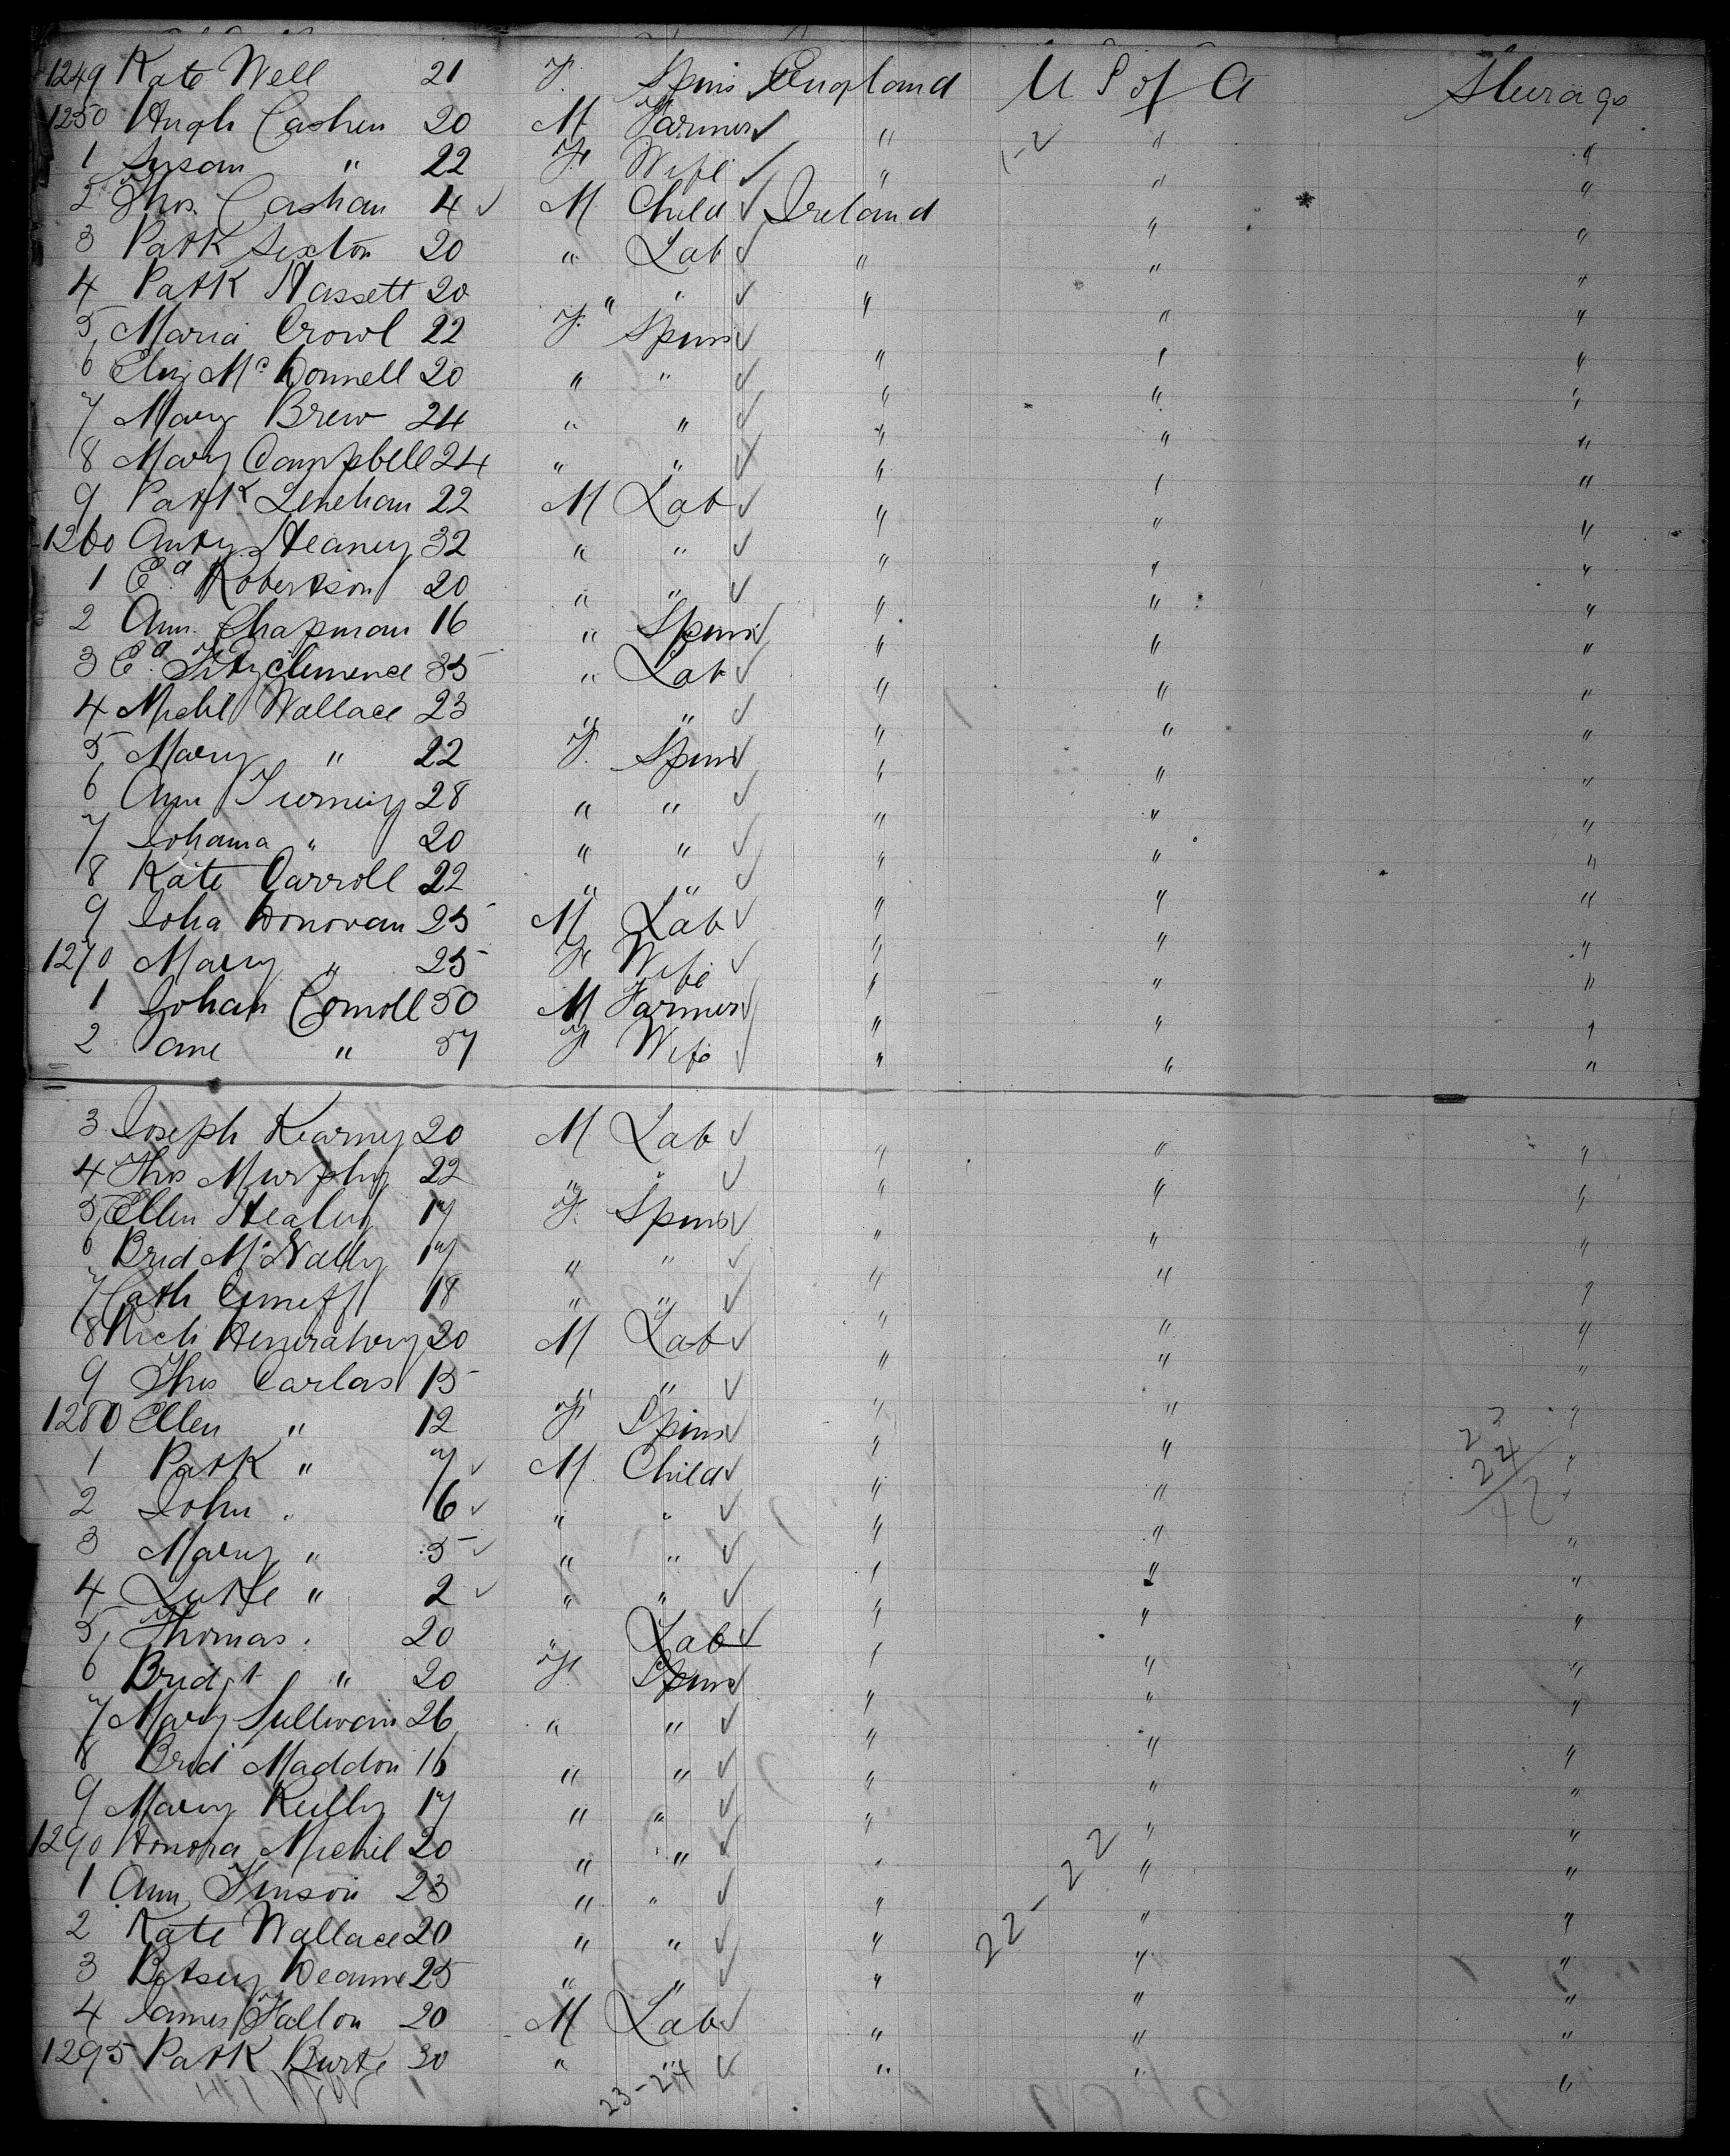 1249 Kate Well 21 F. Spins England U S of A Steerage
1250 Hugh Cashen 20 M Farmer " " "
1 Susan " 22 F Wife " " "
2 Thos. Cashan 4 M Child Ireland " "
3 Patk Sexton 20 " Lab " " "
4 Patk Hassett 20 " " " " "
5 Maria Crowl 22 F. Spins " " "
6 Eliz McDonnell 20 " " " " "
7 Mary Brew 24 " " " " "
8 Mary Campbell 24 " " " " "
9 Patk Lenehan 22 M Lab " " "
1260 Anty Heaney 32 " " " " "
1 Ed. Robertson 20 " " " " "
2 Ann Chapman 16 " Spins " " "
3 Ed. Fitzclemence 35 " Lab " " "
4 Michl Wallace 23 " " " " "
5 Mary " 22 F. Spins " " "
6 Ann Tierney 28 " " " " "
7 Johana " 20 " " " " "
8 Kate Carroll 22 " " " " "
9 John Donovan 25 M Lab " " "
1270 Mary " 25 F Wife " " "
1 Johan Connoll 50 M Farmer " " "
2 Jane " 57 F Wife " " "
3 Joseph Kearney 20 M Lab " " "
4 Thos Murphy 22 " " " " "
5 Ellen Healey 17 F. Spins " " "
6 Brid McNally 17 " " " " "
7 Cath 18 " " " " "
8 Rich 20 M Lab " " "
9 Thos Carlas 15 " " " " "
1280 Ellen " 12 F Spins " " "
1 Patk " 7 M Child " " "
2 John " 6 " " " " "
3 Mary " 5 " " " " "
4 Luke " 2 " " " " "
5 Thomas " 20 " Lab " " "
6 Bridgt " 20 F Spins " " "
7 Mary Sullivan 26 " " " " "
8 Brid Maddon 16 " " " " "
9 Mary Kelly 17 " " " " "
1290 Honora Michil 20 " " " " "
1 Ann 23 " " " " "
2 Kate Wallace 20 " " " " "
3 Betsey Deanne 25 " " " " "
4 James Fallon 20 M Lab " " "
1295 Patk Burke 30 " " " " "
22-22
23-24